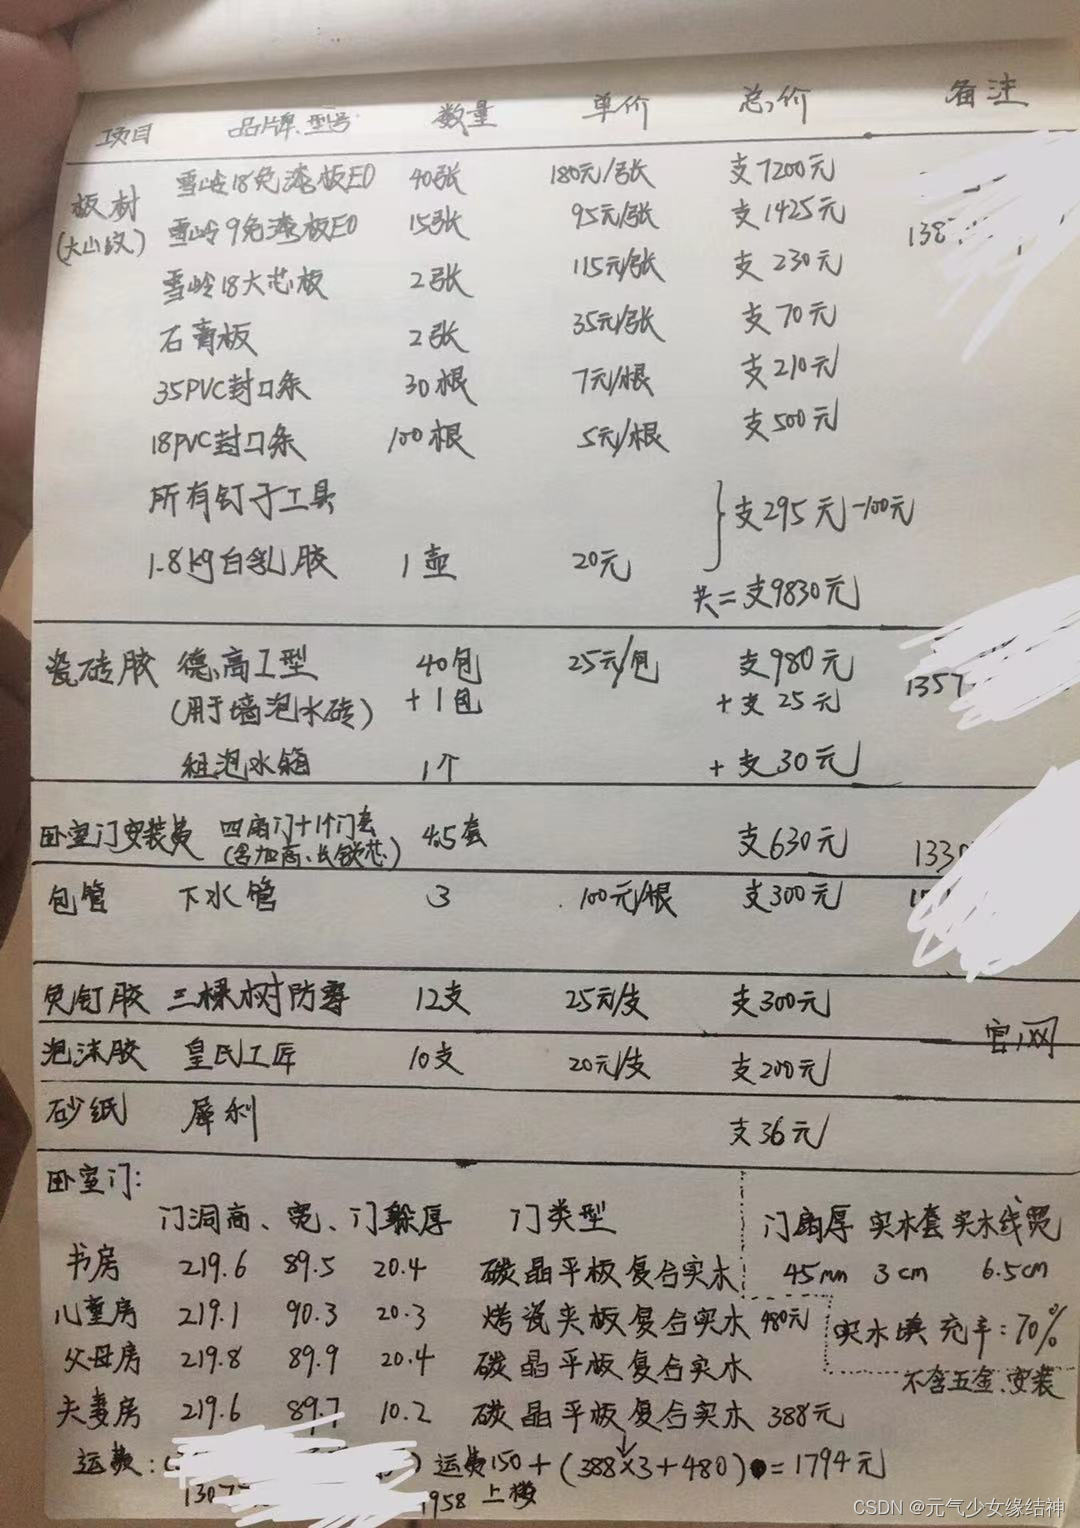 项目 品牌.型号 数量 单价 总价 备注
板材 雪岭18免漆板E0 40张 180元/张 支7200元
(大山纹) 雪岭9免漆板E0 15张 95元/张 支1425元 138
雪岭18大芯板 2张 115元/张 支230元
石膏板 2张 35元/张 支70元
35PVC封口条 30根 7元/根 支210元
18PVC封口条 100根 5元/根 支500元
所有钉子工具 支295元-100元
1.8kg白乳胶 1壶 20元
共=支9830元
瓷砖胶 德高I型 40包 25元/包 支980元 1357
(用于墙泡水砖) +1包 +支25元
租泡水箱 1个 +支30元
卧室门安装费 四扇门+1个门套 4.5套 支630元 1330
(含加高、长锁芯)
包管 下水管 3 100元/根 支300元
免钉胶 三棵树防霉 12支 25元/支 支300元
官网
泡沫胶 皇氏工匠 10支 20元/支 支200元
砂纸 犀利 支36元
卧室门:
门洞高、宽、门躲厚 门类型 门扇厚 实木套 实木线宽
书房 219.6 89.5 20.4 碳晶平板复合实木 45mm 3cm 6.5cm
儿童房 219.1 90.3 20.3 烤瓷夹板复合实木 480元 实木填充率:70%
父母房 219.8 89.9 20.4 碳晶平板复合实木 不含五金.安装
夫妻房 219.6 89.7 10.2 碳晶平板复合实木 388元
运费:( ) 运费150+(388×3+480)=1794元
1307 1958 上楼
CSDN @元气少女缘结神